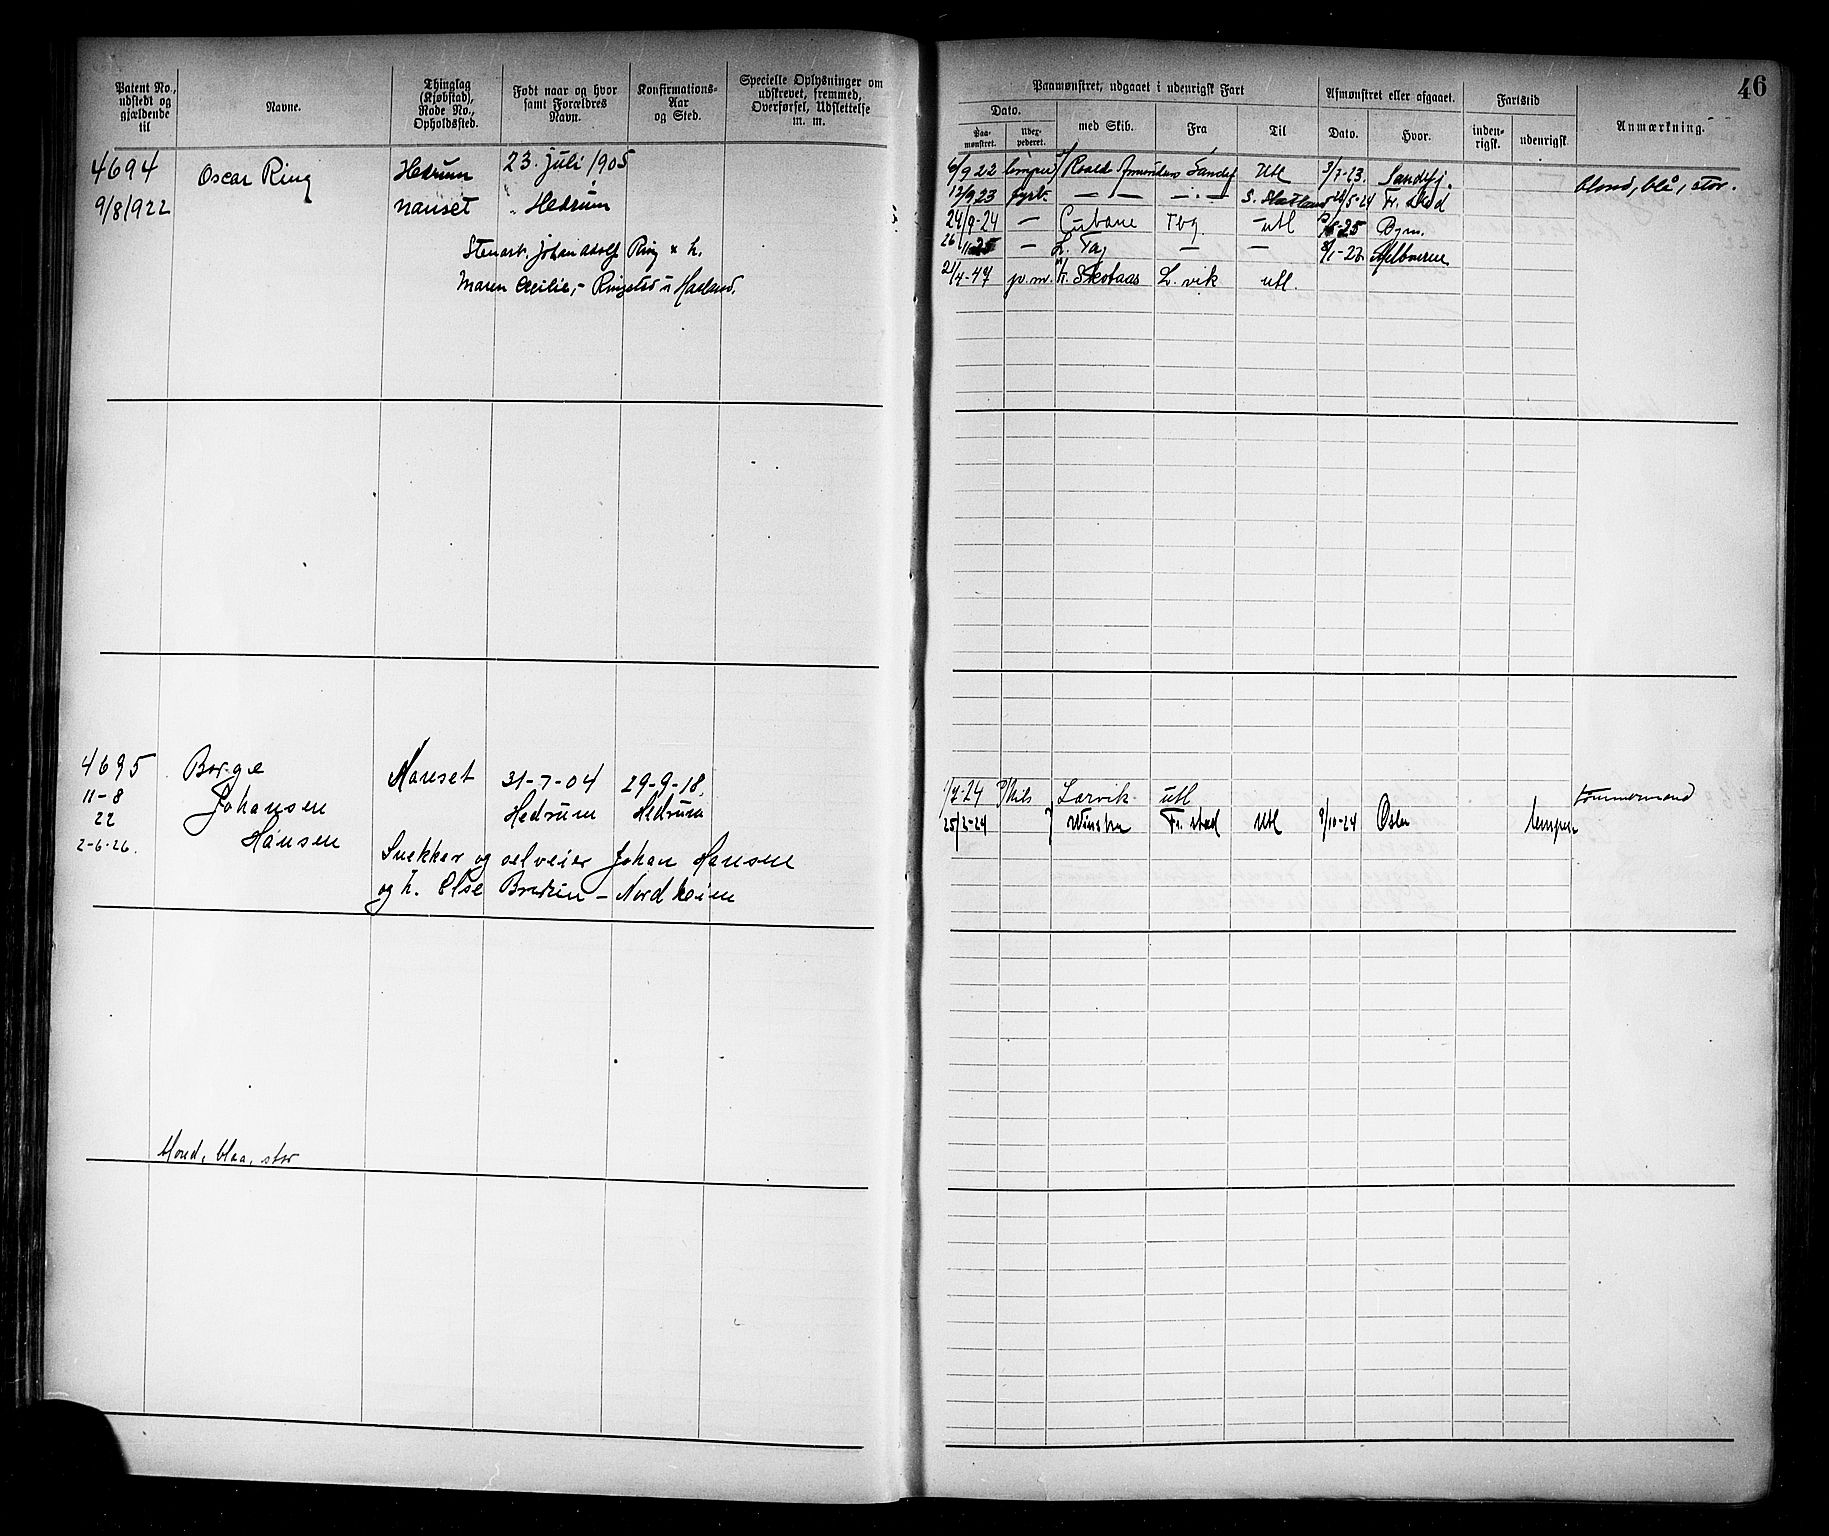 Patent No., udstedt og gjældende til
Navne.
Thinglag (Kjøbstad), Rode No., Opholdssted.
Født naar og hvor samt Forældres Navn.
Konfirmations-Aar og Sted.
Specielle Oplysninger om udskrevet, fremmed, Overførsel, Udslettelse m. m.
4694
9/8 1922
Oscar Ring
Hedrum
nanset
23. juli 1905
" Hedrum
Stenarb. Johan Adolf Ring & h.
Maren Cecilie, - Ringsted
4695
11-8
22
2-6-26.
Borge
Johansen
Hansen
Nanset
31-7-04
Hedrum
29-9-18,
Hedrum
Snekker og selveier Johan Hansen
og h. Else - Nordheim
blond, blaa, stor
46
Paamønstret, udgaaet i udenrigsk Fart
Afmønstret eller afgaaet.
Fartstid
Anmærkning.
Dato.
Paa-mønstret.
Udex-pederet.
med Skib.
Fra
Til
Dato.
Hvor.
inden-rigsk.
udenrigsk.
6/9 22 Roald Amundsen Sandef Utl 3/7-23. Sandefj.
blond, blå, stor.
12/9 23 fyrb. — — — S. Shetland 5-24 Fr. stad
24/9-24 — Cubane Tbg. — utl 25
26 11 25 — — — 26. Melbourne
21/4-47 Skotaas L. vik utl.
1/2-24 Nils Larvik utl
tømmermand
25/2-24 Fr. stad Utl 9/10-24 Oslo